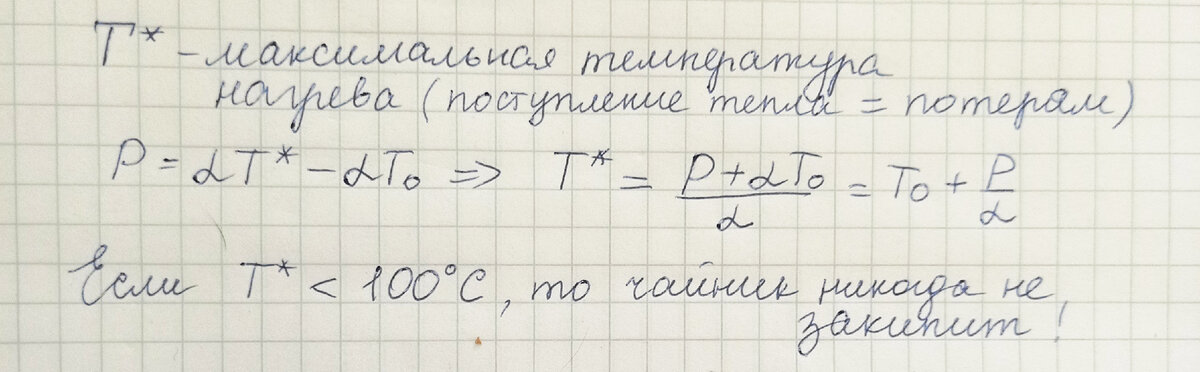 T* – максимальная температура
нагрева (поступление тепла = потерям)
P = αT* – αT₀ => T* = (P + αT₀)/α = T₀ + P/α
Если T* < 100°C, то чайник никогда не
закипит!